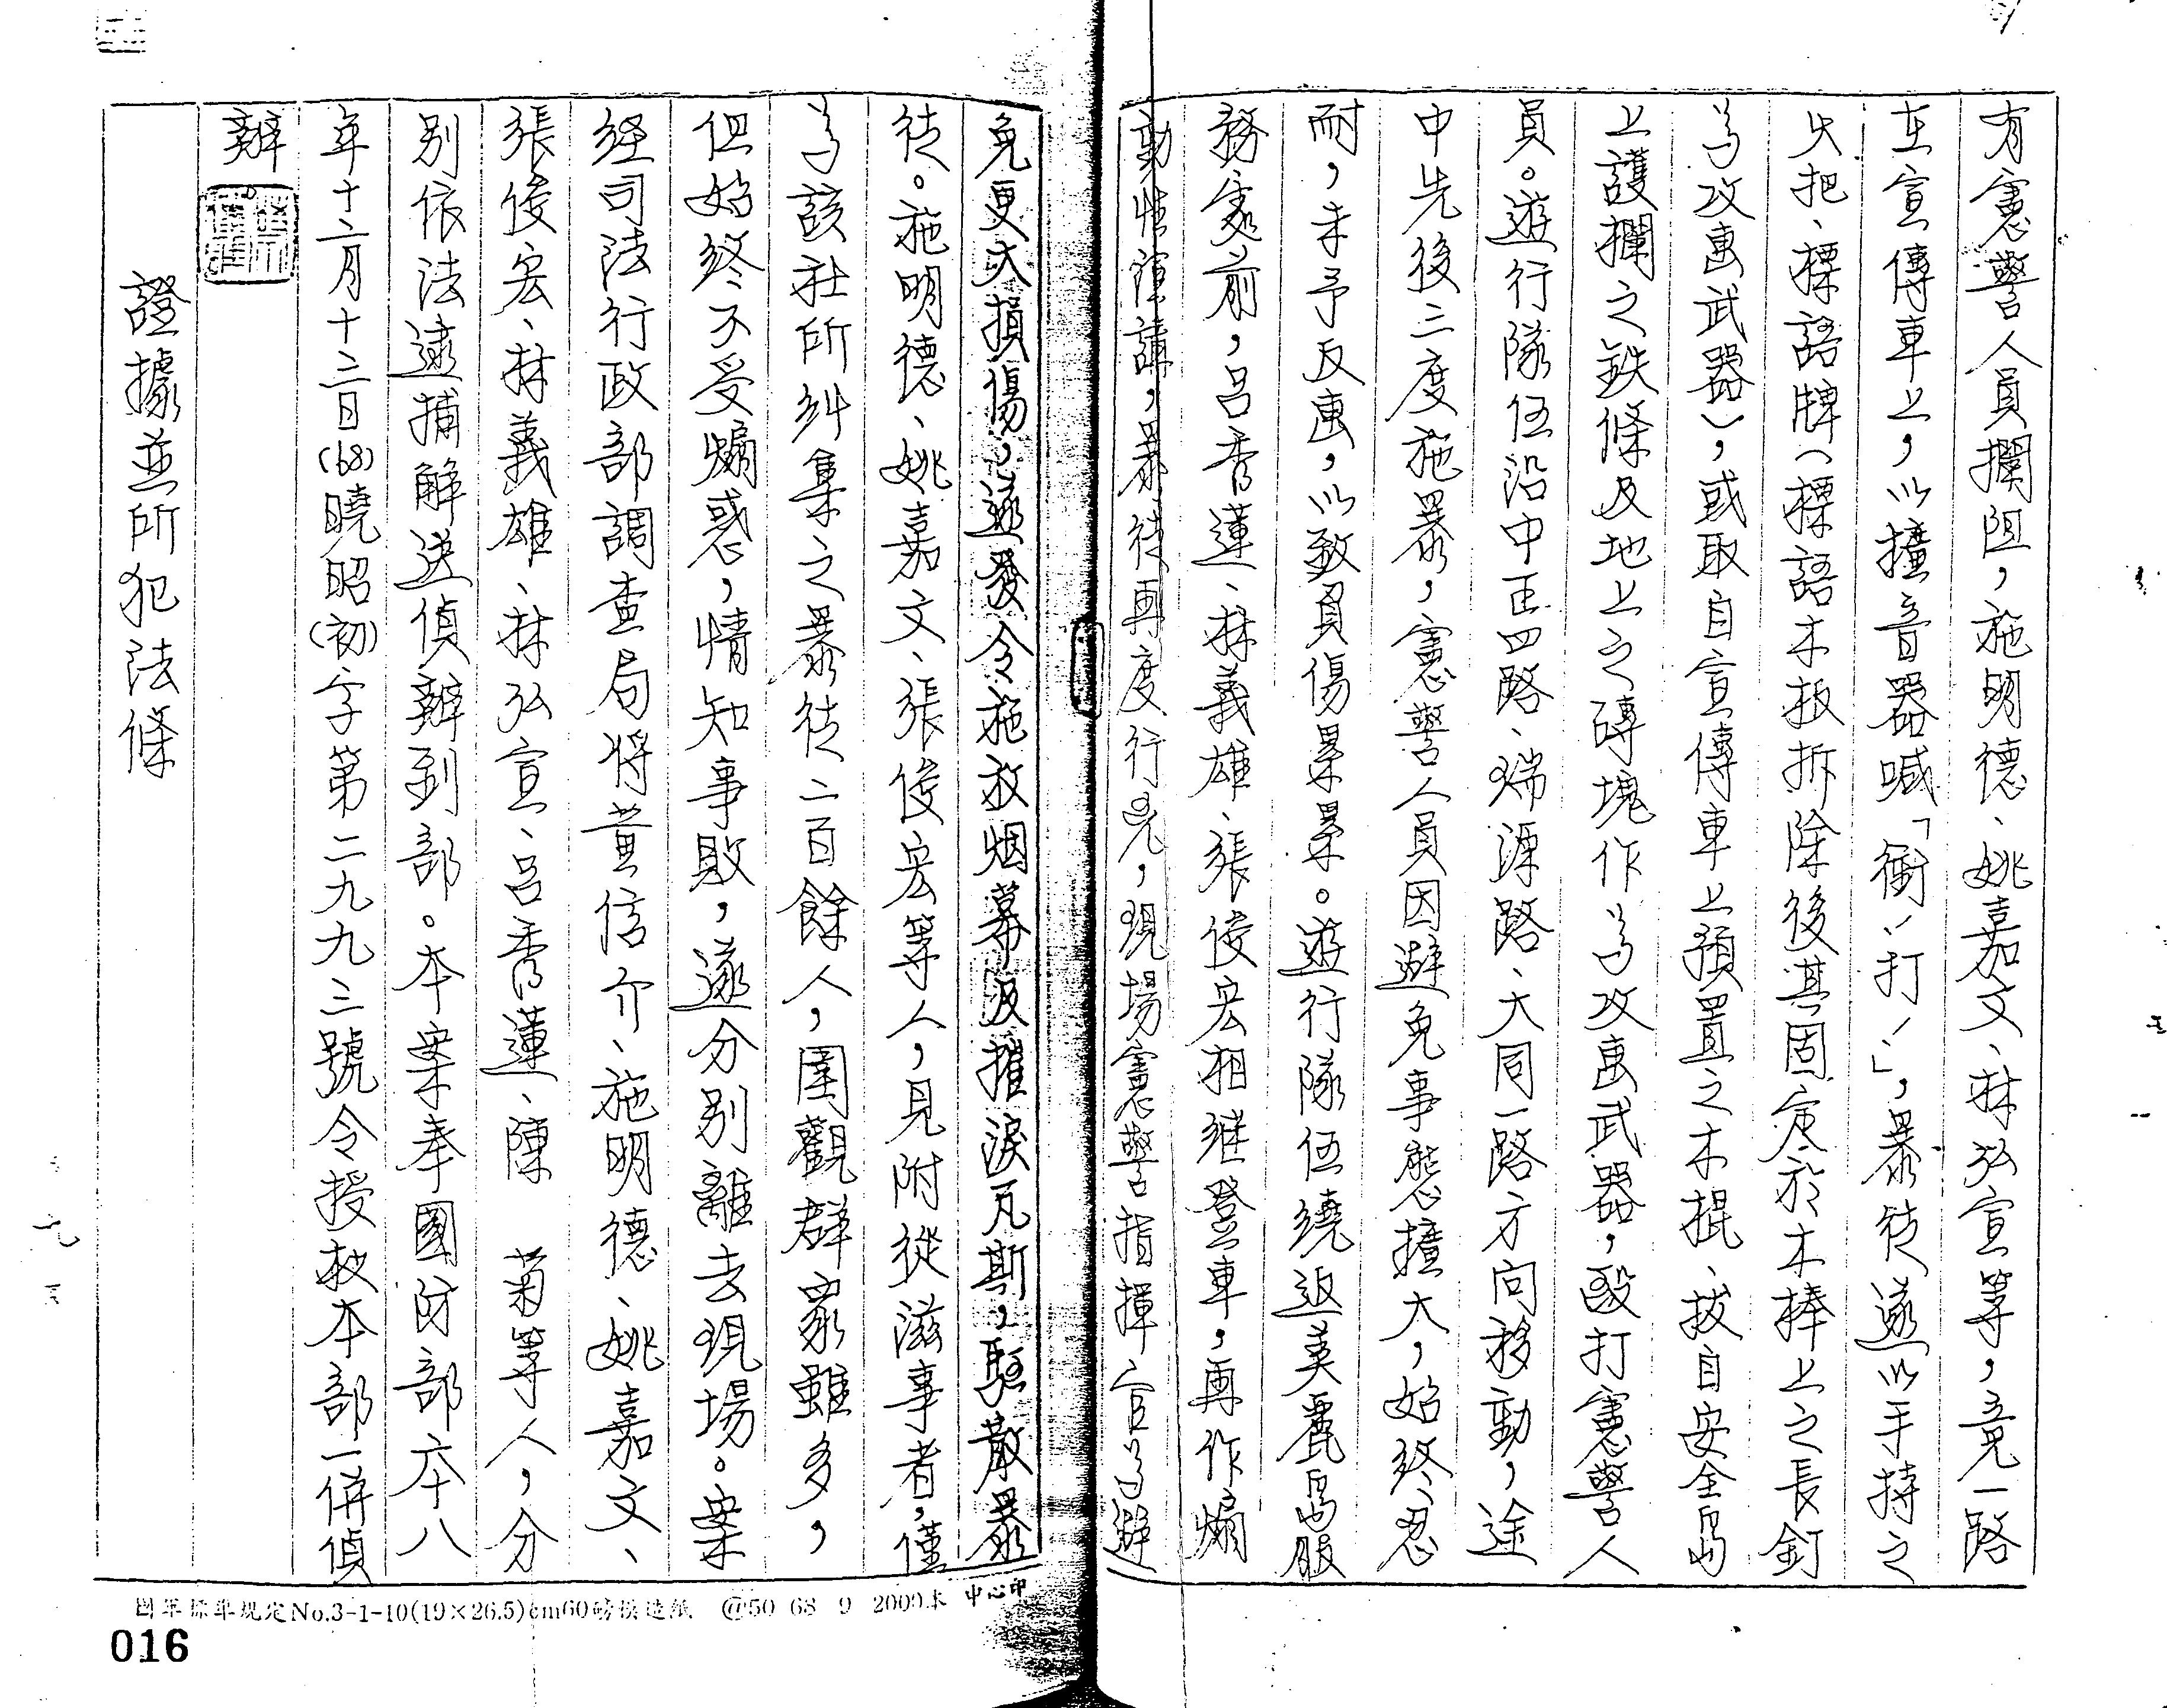 有憲警人員攔阻，施明德、姚嘉文、林弘宣等，竟一路
在宣傳車上，以擴音器喊「衝！打！」，暴徒遂以手持之
火把、標語牌（標語木板拆除後其固定於木棒上之長釘
為攻擊武器），或取自宣傳車上預置之木棍、拔自安全島
上護欄之鉄條及地上之磚塊作為攻擊武器，毆打憲警人
員。遊行隊伍沿中正四路、瑞源路、大同一路方向移動，途
中先後二度施暴，憲警人員因避免事態擴大，始終忍
耐，未予反擊，以致負傷累累。遊行隊伍繞返美麗島服
務處前，呂秀蓮、林義雄、張俊宏相継登車，再作煽
動性演講，暴徒再度行兇，現場憲警指揮官為避
免更大損傷，遂發令施放烟幕及摧淚瓦斯，驅散暴
徒。施明德、姚嘉文、張俊宏等人，見附從滋事者，僅
為該社所糾集之暴徒二百餘人，圍觀群眾雖多，
但始終不受煽惑，情知事敗，遂分別離去現場。案
經司法行政部調查局將黃信介、施明德、姚嘉文、
張俊宏、林義雄、林弘宣、呂秀蓮、陳　菊等人，分
別依法逮捕解送偵辦到部。本案奉國防部六十八
年十二月十二日(68)曉昭(初)字第二九九三號令授權本部一併偵
辦
證據並所犯法條
國軍標準規定No.3-1-10(19×26.5)cm60磅模造紙　@50 68 9 2000本 中心印
016